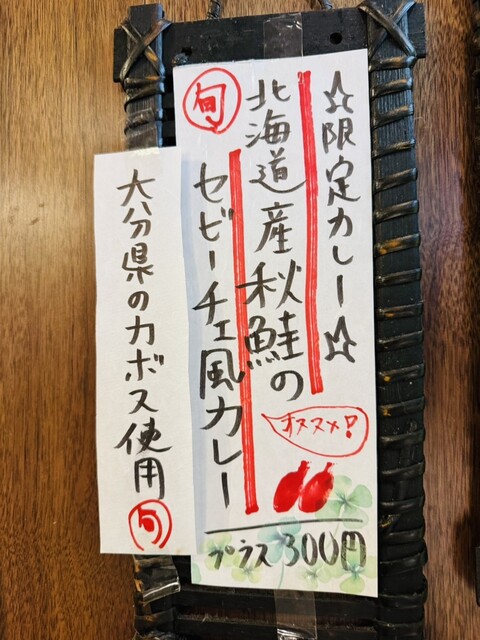 ☆限定カレー☆
北海道産秋鮭の
旬
セビーチェ風カレー
オススメ!
プラス300円
大分県のカボス使用
旬